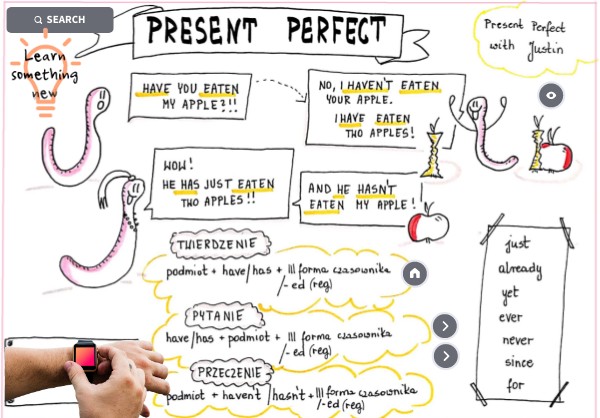 SEARCH
PRESENT PERFECT
Present Perfect
with Justin
Learn
something
new
HAVE YOU EATEN
MY APPLE?!!
NO, I HAVEN'T EATEN
YOUR APPLE.
I HAVE EATEN
TWO APPLES!
WOW!
HE HAS JUST EATEN
TWO APPLES!!
AND HE HASN'T
EATEN MY APPLE!
TWIERDZENIE
podmiot + have/has + III forma czasownika
/- ed (reg)
PYTANIE
have/has + podmiot + III forma czasownika
/- ed (reg)
PRZECZENIE
podmiot + haven't / hasn't + III forma czasownika
/- ed (reg)
just
already
yet
ever
never
since
for